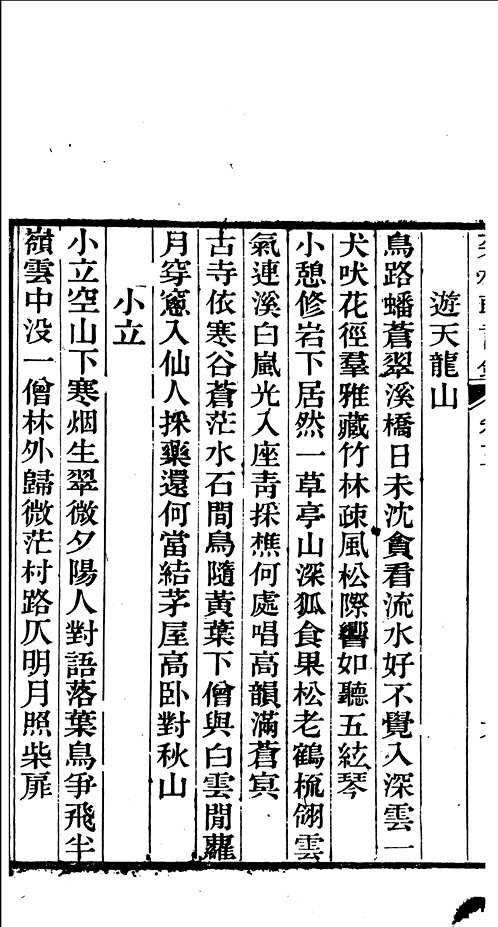 遊天龍山
鳥路蟠蒼翠溪橋日未沈貪看流水好不覺入深雲一
犬吠花徑羣雅藏竹林疎風松際響如聽五絃琴
小憩修岩下居然一草亭山深狐食果松老鶴梳翎雲
氣連溪白嵐光入座靑採樵何處唱高韻滿蒼冥
古寺依寒谷蒼茫水石間鳥隨黃葉下僧與白雲閒蘿
月穿窻入仙人採藥還何當結茅屋高卧對秋山
小立
小立空山下寒烟生翠微夕陽人對語落葉鳥爭飛半
嶺雲中没一僧林外歸微茫村路仄明月照柴扉